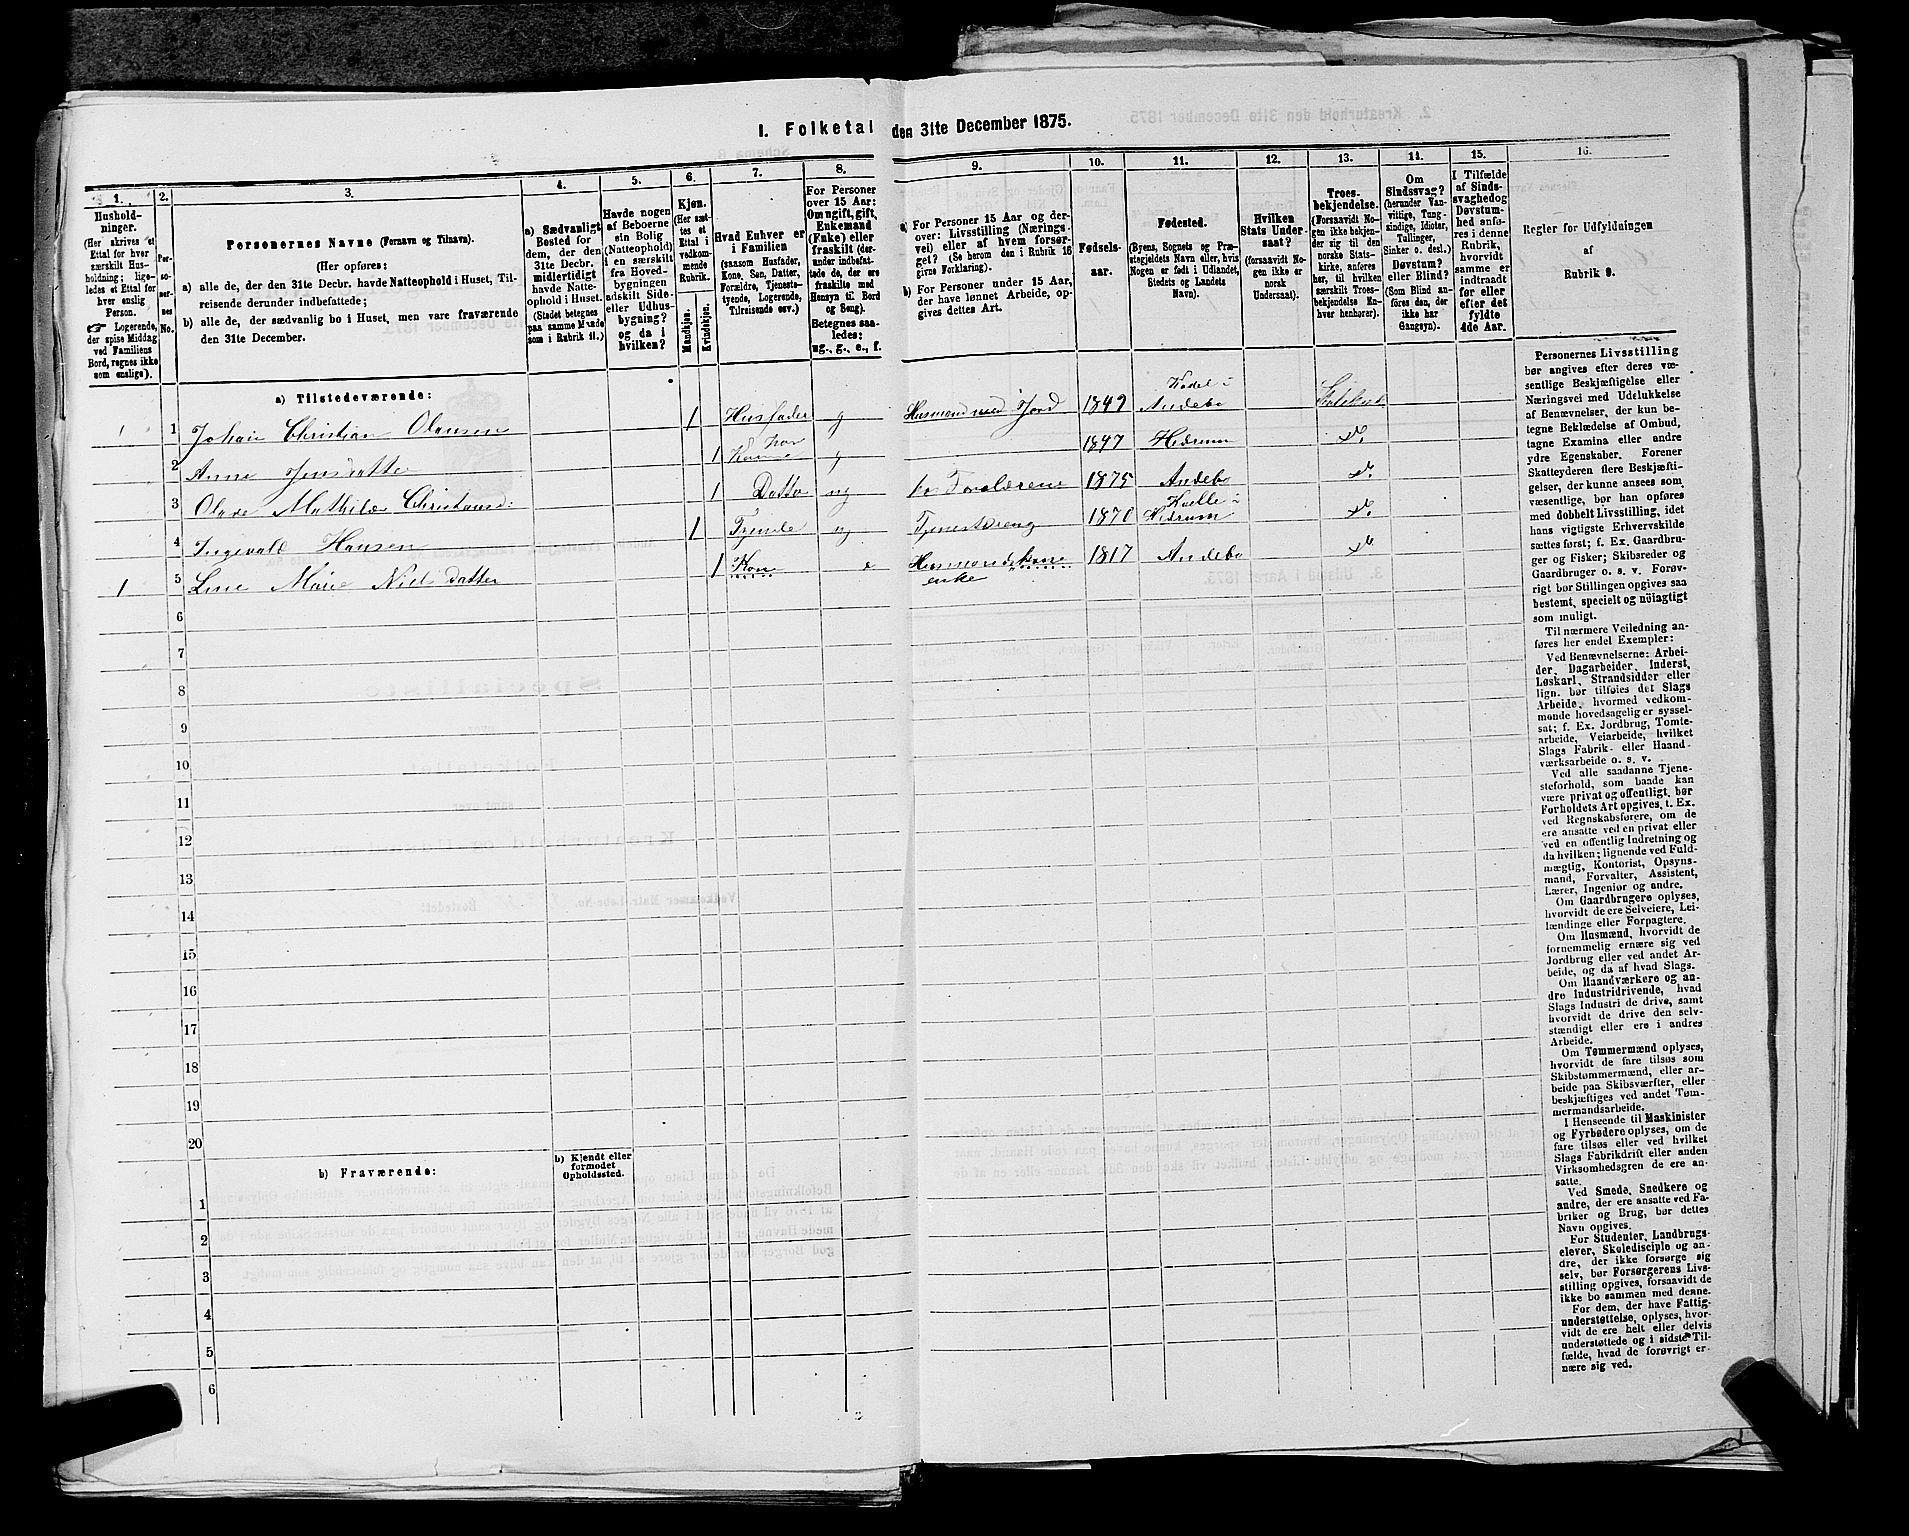 I. Folketal den 31te December 1875.
1.
Hushold-
ninger.
(Her skrives et
Ettal for hver
særskilt Hus-
holdning; lige-
ledes et Ettal for
hver enslig
Person.
☞ Logerende,
der spise Middag
ved Familiens
Bord, regnes ikke
som enslige).
2.
Per-
so-
ner-
nes
No.
3.
Personernes Navne (Fornavn og Tilnavn).
(Her opføres:
a) alle de, der den 31te Decbr. havde Natteophold i Huset, Til-
reisende derunder indbefattede;
b) alle de, der sædvanlig bo i Huset, men vare fraværende
den 31te December.
4.
a) Sædvanligt
Bosted for
dem, der den
31te Decbr.
midlertidigt
havde Natte-
ophold i Huset.
(Stedet betegnes
paa samme Maade
som i Rubrik 11.)
5.
Havde nogen
af Beboerne
sin Bolig
(Natteophold)
i en særskilt
fra Hoved-
bygningen
adskilt Side-
eller Udhus-
bygning?
og da i
hvilken?
6.
Kjøn.
(Her sæt-
tes et
Ettal i
vedkom-
mende
Rubrik.
Mandkjøn.
Kvindekjøn.
7.
Hvad Enhver er
i Familien
(saasom Husfader,
Kone, Søn, Datter,
Forældre, Tjenest-
tyende, Logerende,
Tilreisende osv.)
8.
For Personer
over 15 Aar:
Om ugift, gift,
Enkemand
(Enke) eller
fraskilt (der-
under indbefat-
tede de, der ere
fraskilte med
Hensyn til Bord
og Seng).
Betegnes saa-
ledes:
ug., g., e., f.
9.
a) For Personer 15 Aar og der-
over: Livsstilling (Nærings-
vei) eller af hvem forsør-
get? (Se herom den i Rubrik 16
givne Forklaring).
b) For Personer under 15 Aar,
der have lønnet Arbeide, op-
gives dettes Art.
10.
Fødsels-
aar.
11.
Fødested.
(Byens, Sognets og Præ-
stegjeldets Navn eller, hvis
Nogen er født i Udlandet,
Stedets og Landets
Navn).
12.
Hvilken
Stats Under-
saat?
(forsaavidt No-
gen ikke er
norsk
Undersaat).
13.
Troes-
bekjendelse.
(Forsaavidt No-
gen ikke bekjen-
der sig til den
norske Stats-
kirke, anføres
her, til hvilken
særskilt Troes-
bekjendelse En-
hver henhører).
14.
Om
Sindssvag?
(herunder Van-
vittige, Tung-
sindige, Idioter,
Tullinger,
Sinker o. desl.)
Døvstum?
eller Blind?
(Som Blind an-
føres den, der
ikke har
Gangsyn).
15.
I Tilfælde
af Sinds-
svaghed og
Døvstum-
hed anfø-
res i denne
Rubrik,
hvorvidt
samme er
indtraadt
før eller
efter det
fyldte
4de Aar.
16.
Regler for Udfyldningen
af
Rubrik 9.
a) Tilstedeværende:
1 1 Johan Christian Olausen 1 Husfader g Husmand med Jord 1849 Kodel i Andebo Statskirk
2 Anne Jensdatter 1 Kone g 1847 Hedrum do
3 Olave Mathilde Christiansd: 1 Datter ug hos Forældrene 1875 Andebo do
4 Ingevald Hansen 1 Tyende ug Tjenestdreng 1870 Kvelle i Hedrum do
1 5 Line Marie Nielsdatter 1 Kone e Husmandskone enke 1817 Andebo do
6
7
8
9
10
11
12
13
14
15
16
17
18
19
20
b) Fraværende:
b) Kjendt eller
formodet
Opholdssted.
1
2
3
4
5
6
Personernes Livsstilling
bør angives efter deres væ-
sentlige Beskjæftigelse eller
Næringsvei med Udelukkelse
af Benævnelser, der kun be-
tegne Beklædelse af Ombud,
tagne Examina eller andre
ydre Egenskaber. Forener
Skatteyderen flere Beskjæfti-
gelser, der kunne ansees som
væsentlige, bør han opføres
med dobbelt Livsstilling, idet
hans vigtigste Erhvervskilde
sættes først; f. Ex. Gaardbru-
ger og Fisker; Skibsreder og
Gaardbruger o. s. v. Forøv-
rigt bør Stillingen opgives saa
bestemt, specielt og nöiagtigt
som muligt.
Til nærmere Veiledning an-
føres her endel Exempler:
Ved Benævnelserne: Arbei-
der, Dagarbeider, Inderst,
Løskarl, Strandsidder eller
lign. bør tilføies det Slags
Arbeide, hvormed vedkom-
mende hovedsagelig er syssel-
sat; f. Ex. Jordbrug, Tomte-
arbeide, Veiarbeide, hvilket
Slags Fabrik- eller Haand-
værksarbeide o. s. v.
Ved alle saadanne Tjene-
steforhold, som baade kan
være privat og offentligt, bør
Forholdets Art opgives, t. Ex.
ved Regnskabsførere, om de
ere ansatte ved en privat eller
ved en offentlig Indretning og
da hvilken; lignende ved Fuld-
mægtig, Kontorist, Opsyns-
mand, Forvalter, Assistent,
Lærer, Ingeniør og andre.
Om Gaardbrugere oplyses,
hvorvidt de ere Selveiere, Lei-
lændinge eller Forpagtere.
Om Husmænd, hvorvidt de
fornemmelig ernære sig ved
Jordbrug eller ved andet Ar-
beide, og da af hvad Slags.
Om Haandværkere og an-
dre Industridrivende, hvad
Slags Industri de drive, samt
hvorvidt de drive den selv-
stændigt eller ere i andres
Arbeide.
Om Tømmermænd oplyses,
hvorvidt de fare tilsøs som
Skibstømmermænd, eller ar-
beide paa Skibsværfter, eller
beskjæftiges ved andet Tøm-
mermandsarbeide.
I Henseende til Maskinister
og Fyrbødere oplyses, om de
fare tilsøs eller ved hvilket
Slags Fabrikdrift eller anden
Virksomhedsgren de ere an-
satte.
Ved Smede, Snedkere og
andre, der ere ansatte ved Fa-
briker og Brug, bør dettes
Navn opgives.
For Studenter, Landbrugs-
elever, Skoledisciple og an-
dre, der ikke forsørge sig
selv, bør Forsørgerens Livs-
stilling opgives, forsaavidt de
ikke bo sammen med denne.
For dem, der have Fattig-
understøttelse, oplyses, hvor-
vidt de ere helt eller delvis
understøttede og i sidste Til-
fælde, hvad de forøvrigt er-
nære sig ved.